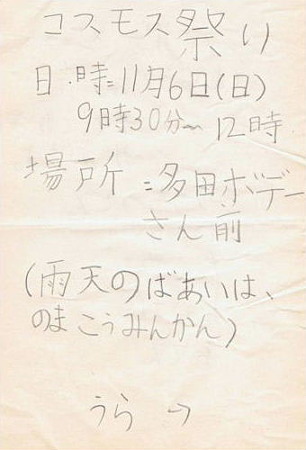 コスモス祭り
日時=11月6日(日)
9時30分〜12時
場所=多田ボデー
さん前
(雨天のばあいは、
のまこうみんかん)
うら→